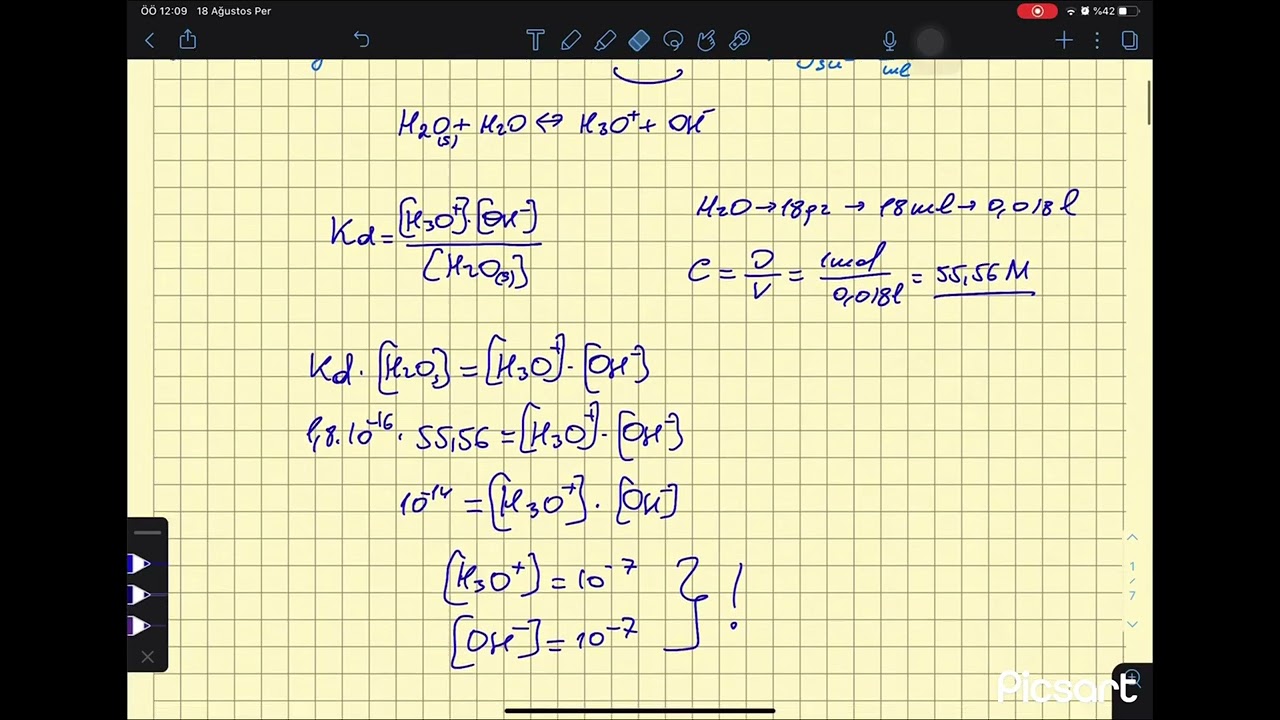 ÖÖ 12:09 18 Ağustos Per %42
ml
H₂O(s) + H₂O ⇔ H₃O⁺ + OH⁻
Kd = [H₃O⁺]·[OH⁻] / [H₂O(s)]
H₂O → 18gr → 18ml → 0,018l
C = n/V = 1mol/0,018l = 55,56 M
Kd · [H₂Os] = [H₃O⁺] · [OH⁻]
1,8.10⁻¹⁶ · 55,56 = [H₃O⁺] · [OH⁻]
10⁻¹⁴ = [H₃O⁺] · [OH⁻]
[H₃O⁺] = 10⁻⁷
[OH⁻] = 10⁻⁷ } !
1/7
Picsart